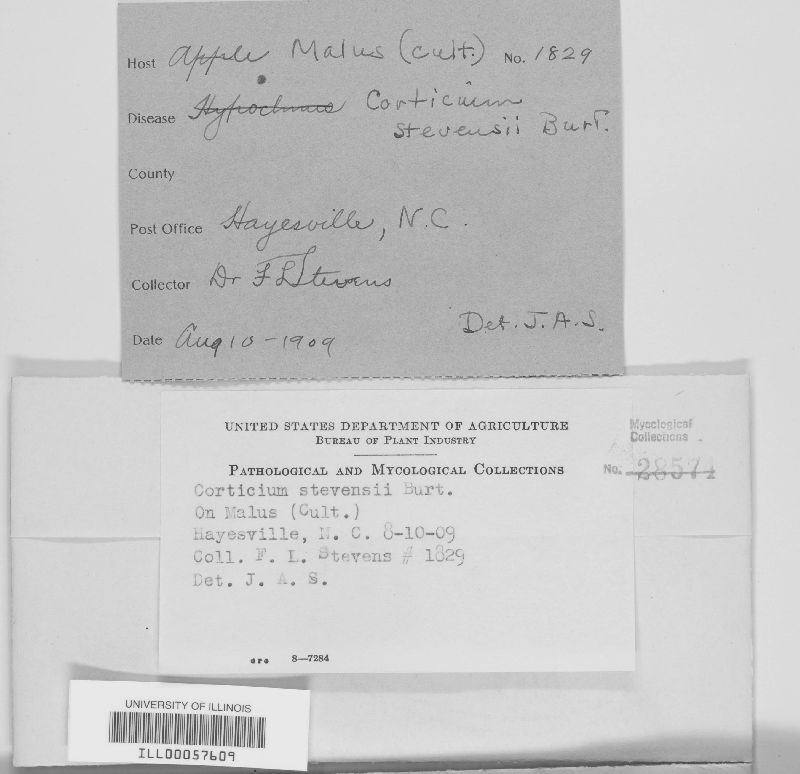 Host Apple Malus (cult.) No. 1829
Disease Hypochnus Corticium
stevensii Burt.
County
Post Office Hayesville, N.C.
Collector Dr F L Stevens
Det. J. A. S.
Date Aug 10-1909
UNITED STATES DEPARTMENT OF AGRICULTURE
BUREAU OF PLANT INDUSTRY
Mycological
Collections
PATHOLOGICAL AND MYCOLOGICAL COLLECTIONS
No. 28574
Corticium stevensii Burt.
On Malus (Cult.)
Hayesville, N. C. 8-10-09
Coll. F. L. Stevens # 1829
Det. J. A. S.
8—7284
UNIVERSITY OF ILLINOIS
ILL00057609